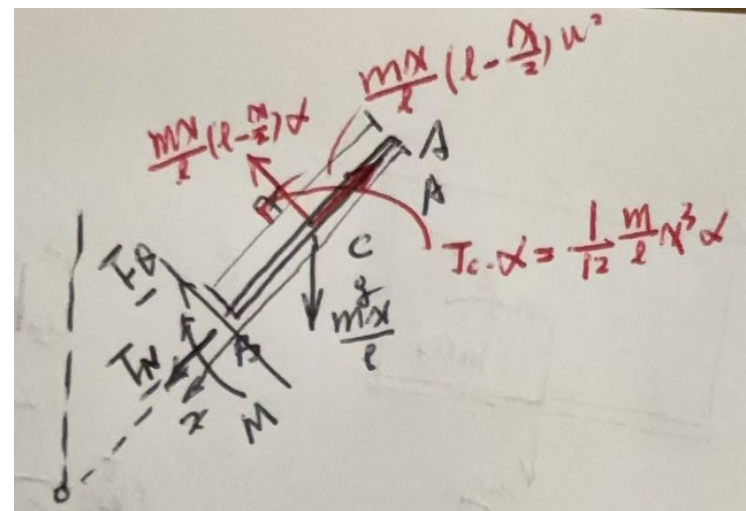 mx/l (l - x/2) ω²
mx/l (l - x/2) α
A
A
C
J_C·α = 1/12 m/l x³ α
g
mx/l
F_Q
F_N
B
x
M
O